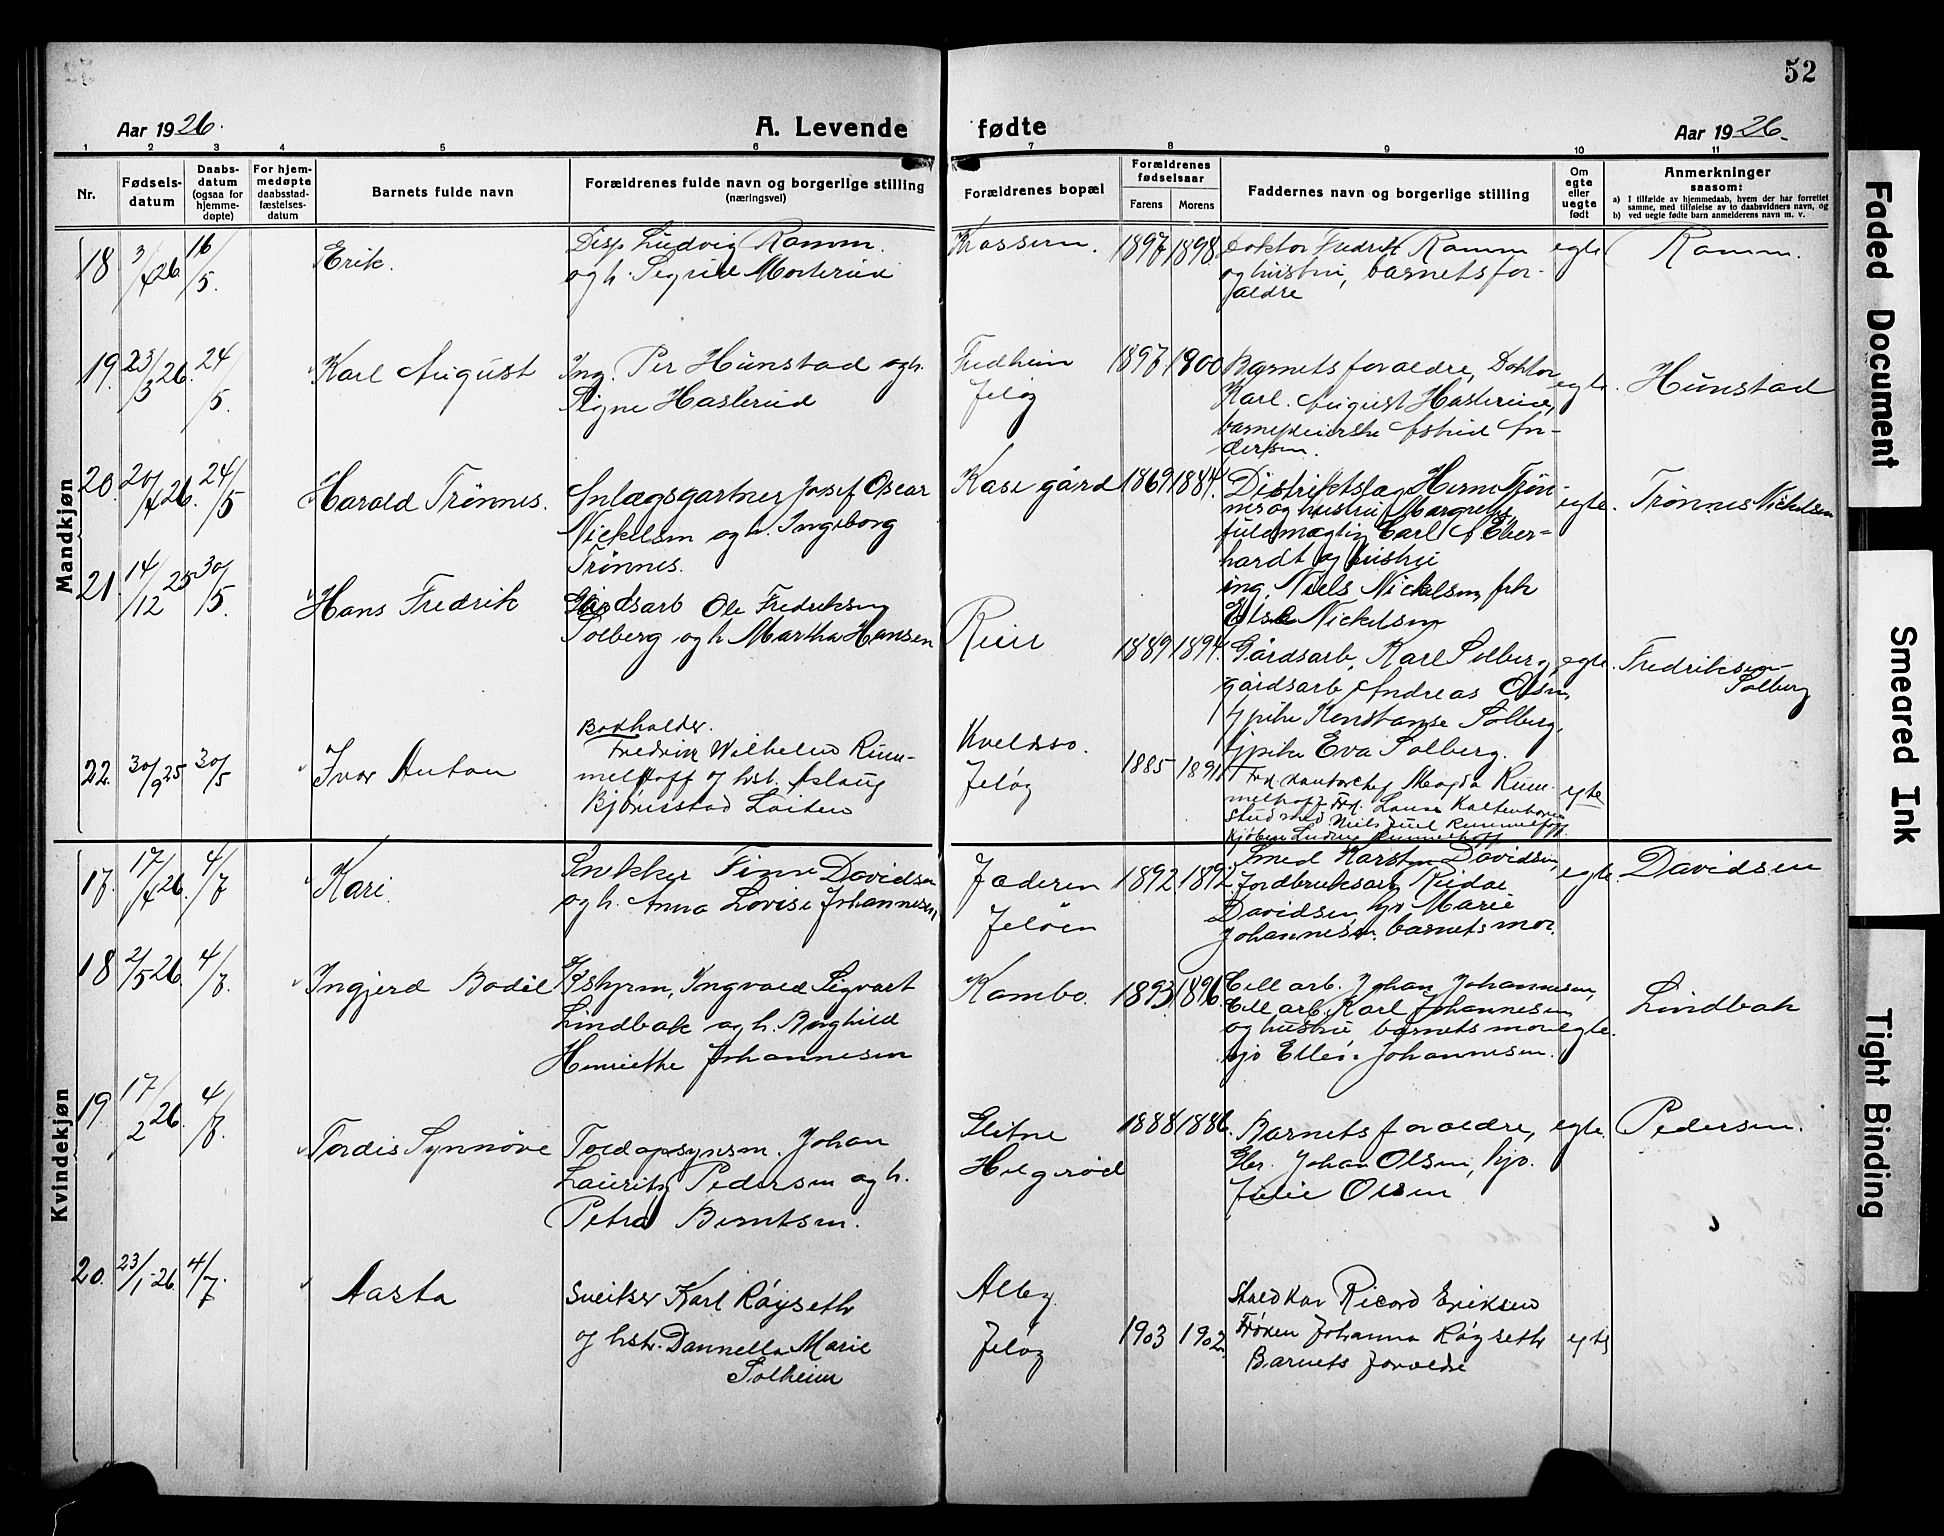 52
Aar 1926.
A. Levende
fødte
Aar 1926.
1 2 3 4 5 6 7 8 9 10 11
Nr.
Fødselsdatum
Daabsdatum
(ogsaa for
hjemmedøpte)
For hjemmedøpte
daabsstadfæstelsesdatum
Barnets fulde navn
Forældrenes fulde navn og borgerlige stilling
(næringsvei)
Forældrenes bopæl
Forældrenes
fødselsaar
Farens Morens
Faddernes navn og borgerlige stilling
Om
egte
eller
uegte
født
Anmerkninger
saasom:
a) I tilfælde av hjemmedaab, hvem der har forrettet
samme, med tilføielse av to daabsvidners navn, og
b) ved uegte fødte barn anmelderens navn m. v.
Mandkjøn
18 3/4 26 16/5. Erik.
Disp Ludvig Ramm.
og h. Sigrid Mosterud
Krossern. 1897 1898.
Doktor Fredrik Ramm
og hustru, barnets for-
ældre
egte
Ramm.
19. 23/3 26. 24/5. Karl August
Ing. Per Hunstad og h.
Signe Hasterud
Fredheim
Jeløy
1897 1900
Barnets forældre, Doktor
Karl August Hasterud,
barnepleierske Astrid An-
dersen.
egte.
Hunstad
20. 20/4 26. 24/5 Harald Trønnes.
Anlægsgartner Josef Oscar
Nickelsen og h. Ingeborg
Trønnes.
Kase gård 1869 1884.
Distriktslæg Herm Trøn-
nes og hustru Margrethe
fuldmægtig Carl A Eber-
hardt og hustru
ing. Niels Nickelsen, frk
Else Nickelsen
egte.
Trønnes Nickelsen
21. 14/12 25 30/5. Hans Fredrik
Gårdsarb Ole Fredriksen
Solberg og h Martha Hansen
Reier
1889 1894.
Gårdsarb. Karl Solberg,
gårdsarb Andreas Olsen,
tj pike Konstanse Solberg,
tj pike Eva Solberg.
egte.
Fredriksen
Solberg
22. 30/9 25 30/5 Ivar Anton
Bokholder.
Fredrik Wilhelm Rum-
melhoff og hst. Aslaug
Bjørnstad Loiten
Kveldsro.
Jeløy
1885 1891
Frk. kontorchef Magda Rum-
melhoff Frk. Laura Kaltenborn
Stud med Niels Juel Rummelhoff
Kjøbm Ludvig Rummelhoff
egte
Kvindekjøn
17. 17/4 26. 4/7 Kari.
Snekker Finn Davidsen
og h. Anna Lovise Johannesen
Jæderen
Jeløen
1892 1892
Smed Karsten Davidsen,
Jordbruksarb Reidar
Davidsen, hr Marie
Johannesen, barnets mor.
egte.
Davidsen
18 2/5 26. 4/7. Ingjerd Bodil
Fstyrm, Ingvald Sigvart
Lindbak og h. Borghild
Henriette Johannesen
Kambo. 1893 1896.
Cell arb. Johan Johannesen,
Cell arb. Karl Johannesen
og hustru barnets mor
hr Ellen Johannesen.
egte.
Lindbak
19. 17/2 26. 4/7. Tordis Synnøve
Toldopsynsm. Johan
Lauritz Pedersen og h.
Petra Berntsen.
Glitne
Helgerød
1888 1886.
Barnets forældre,
Gbr. Johan Olsen, hr.
Julie Olsen
egte.
Pedersen.
20. 23/1-26. 4/7. Aasta
Sveitser Karl Røyseth
og hst. Dannella Marie
Solheim
Alby
Jeløy
1903 1902
Staldkar Ricord Eriksen
Frøken Johanna Røyseth
Barnets forældre
egte
Faded Document
Smeared Ink
Tight Binding